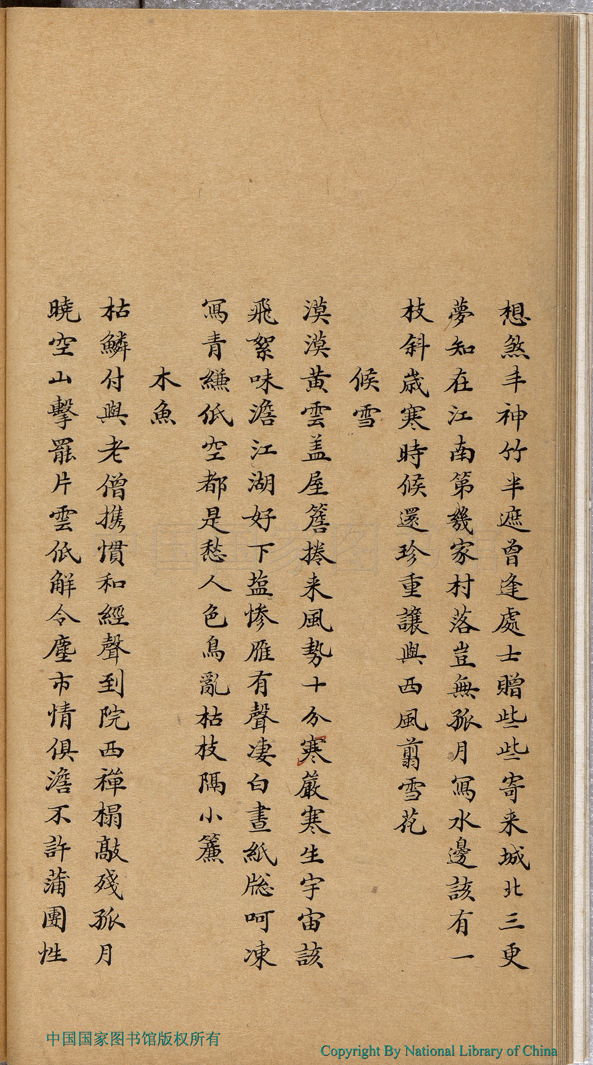 想煞丰神竹半遮曾逢處士贈些些寄来城北三更
夢知在江南第幾家村落豈無孤月寫水邊該有一
枝斜歲寒時候還珍重讓與西風翦雪花
候雪
漠漠黃雲盖屋簷捲来風勢十分寒嚴寒生宇宙該
飛絮味澹江湖好下盐惨雁有聲凄白晝紙牕呵凍
寫青縑低空都是愁人色鳥亂枯枝隔小簾
木魚
枯鱗付與老僧携慣和經聲到院西禪榻敲殘孤月
曉空山擊罷片雲低解令塵市情俱澹不許蒲團性
中国国家图书馆版权所有
Copyright By National Library of China